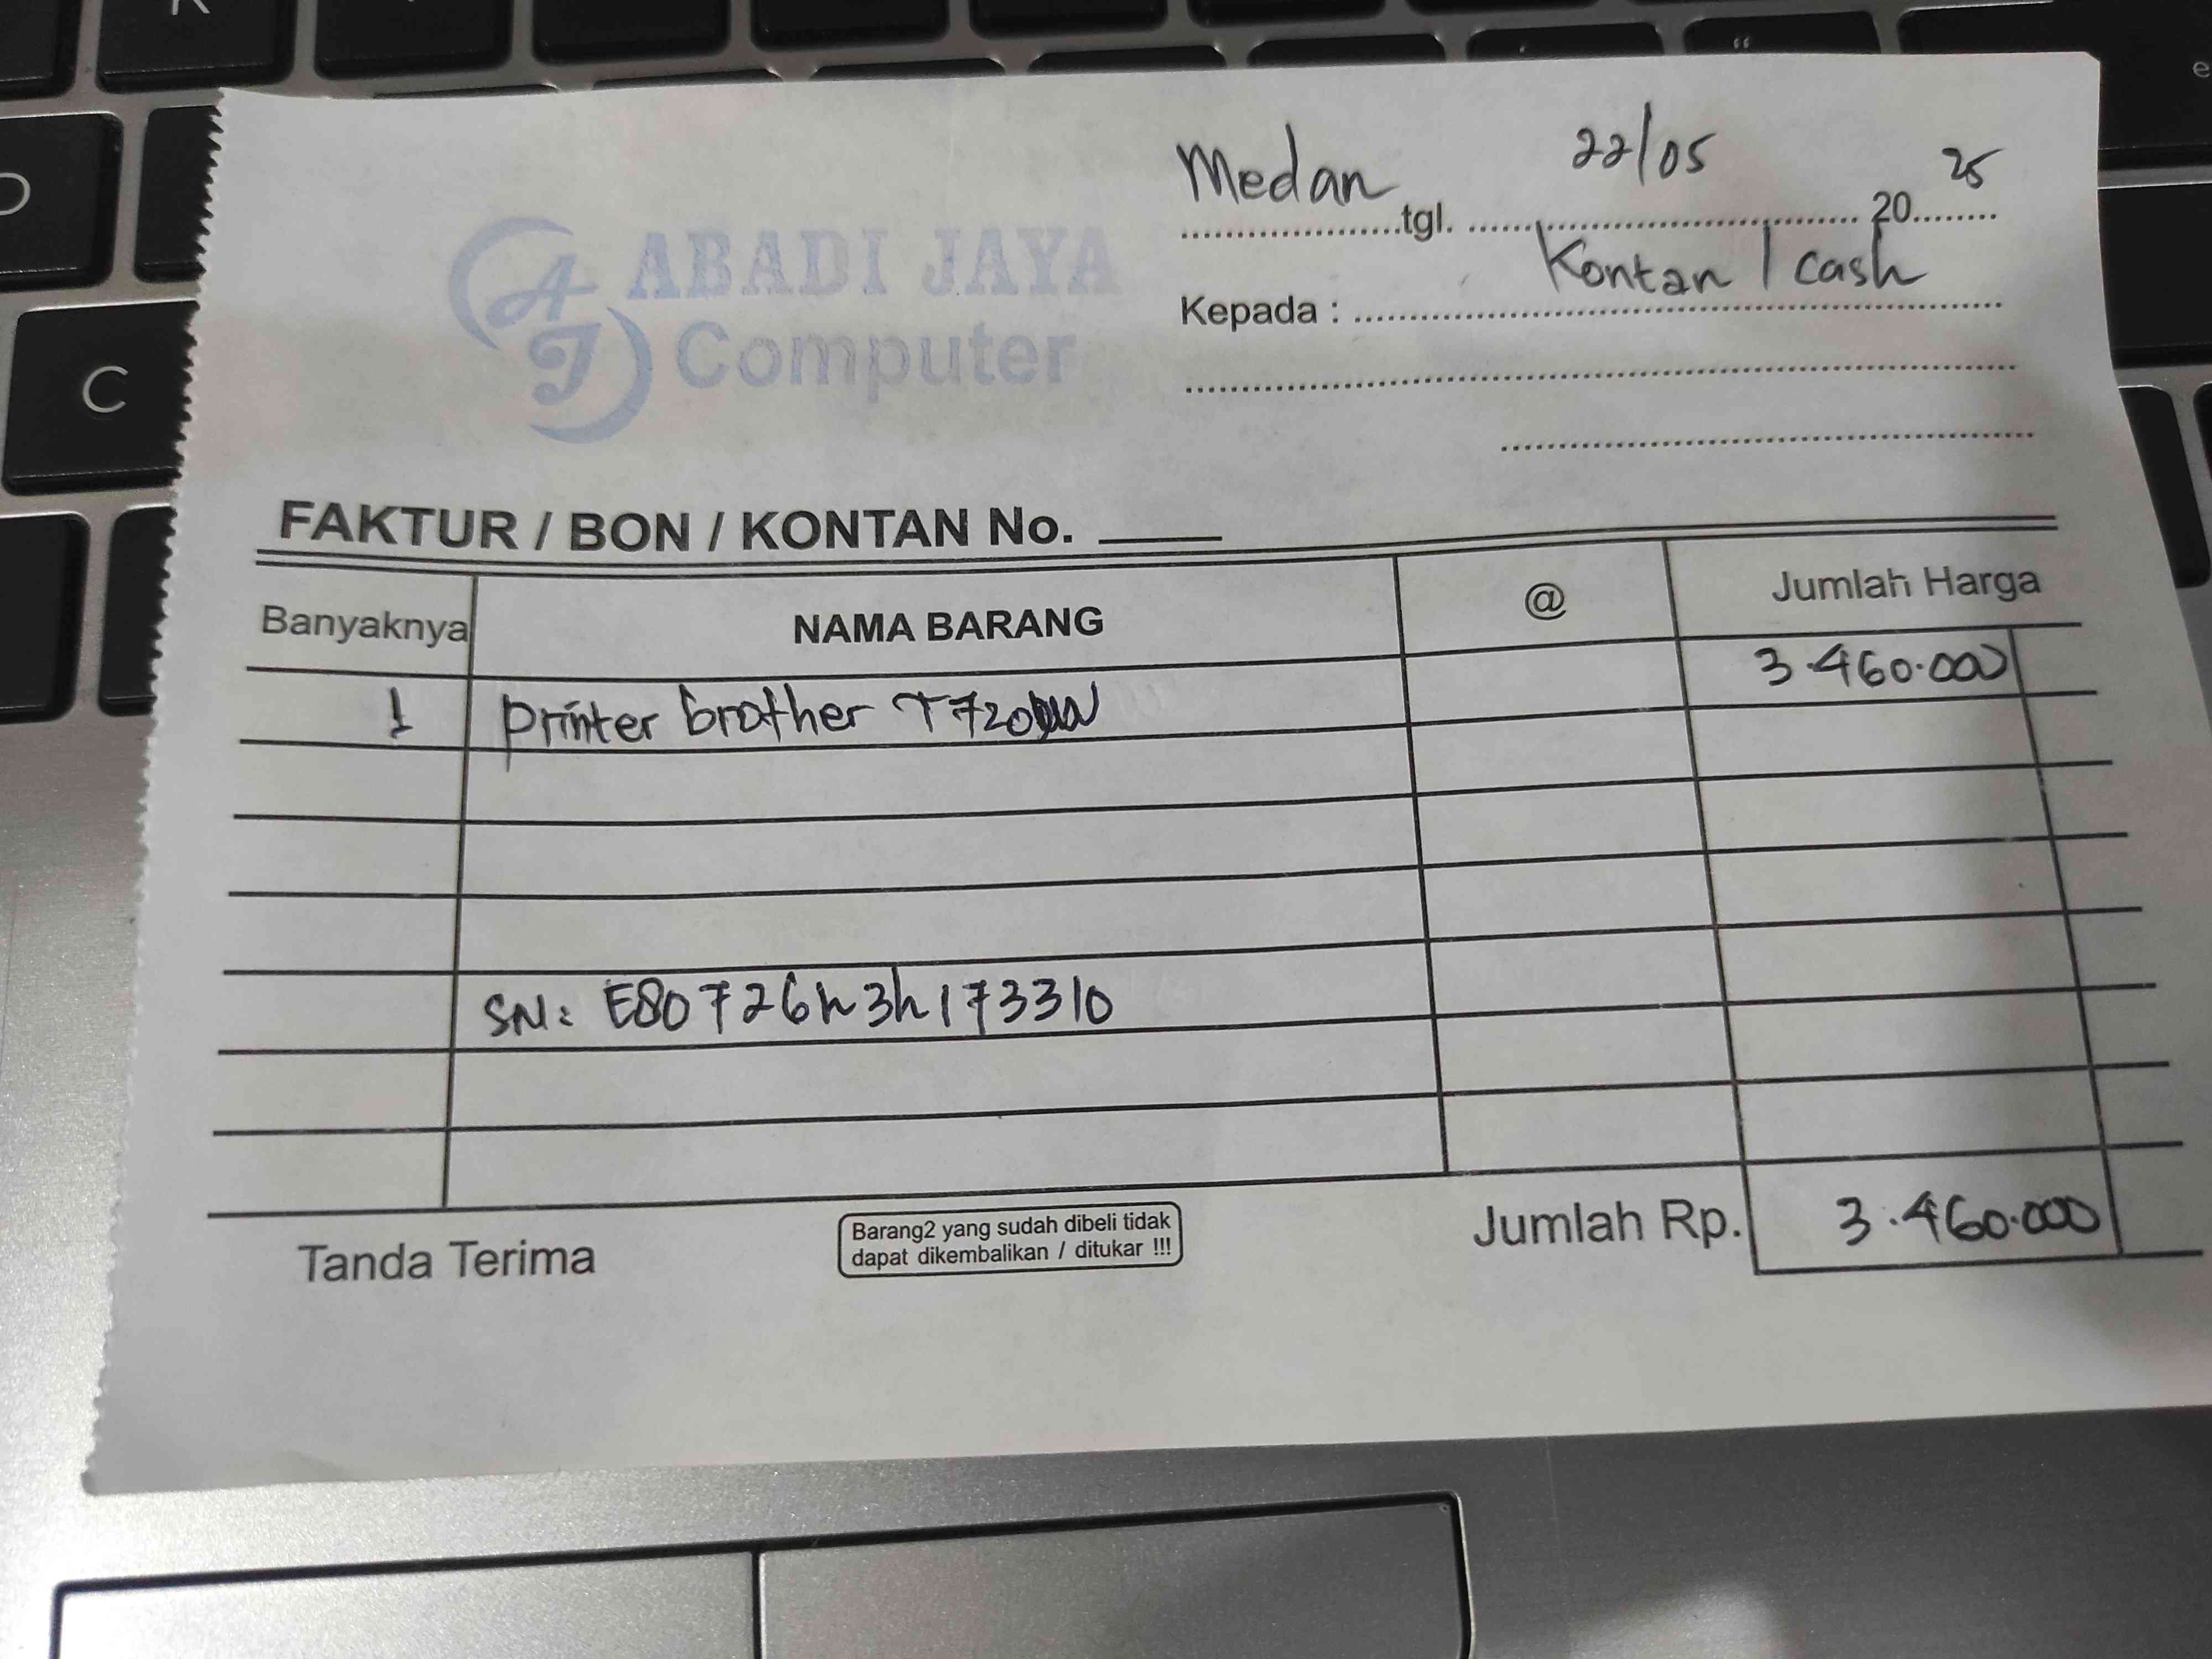 Medan tgl. 22/05 2025
Kepada : Kontan / cash
ABADI JAYA
Computer
AJ
FAKTUR / BON / KONTAN No.
Banyaknya NAMA BARANG @ Jumlah Harga
1 Printer brother T720DW 3.460.000
SN: E80726h3h173310
Tanda Terima
Barang2 yang sudah dibeli tidak
dapat dikembalikan / ditukar !!!
Jumlah Rp. 3.460.000
C